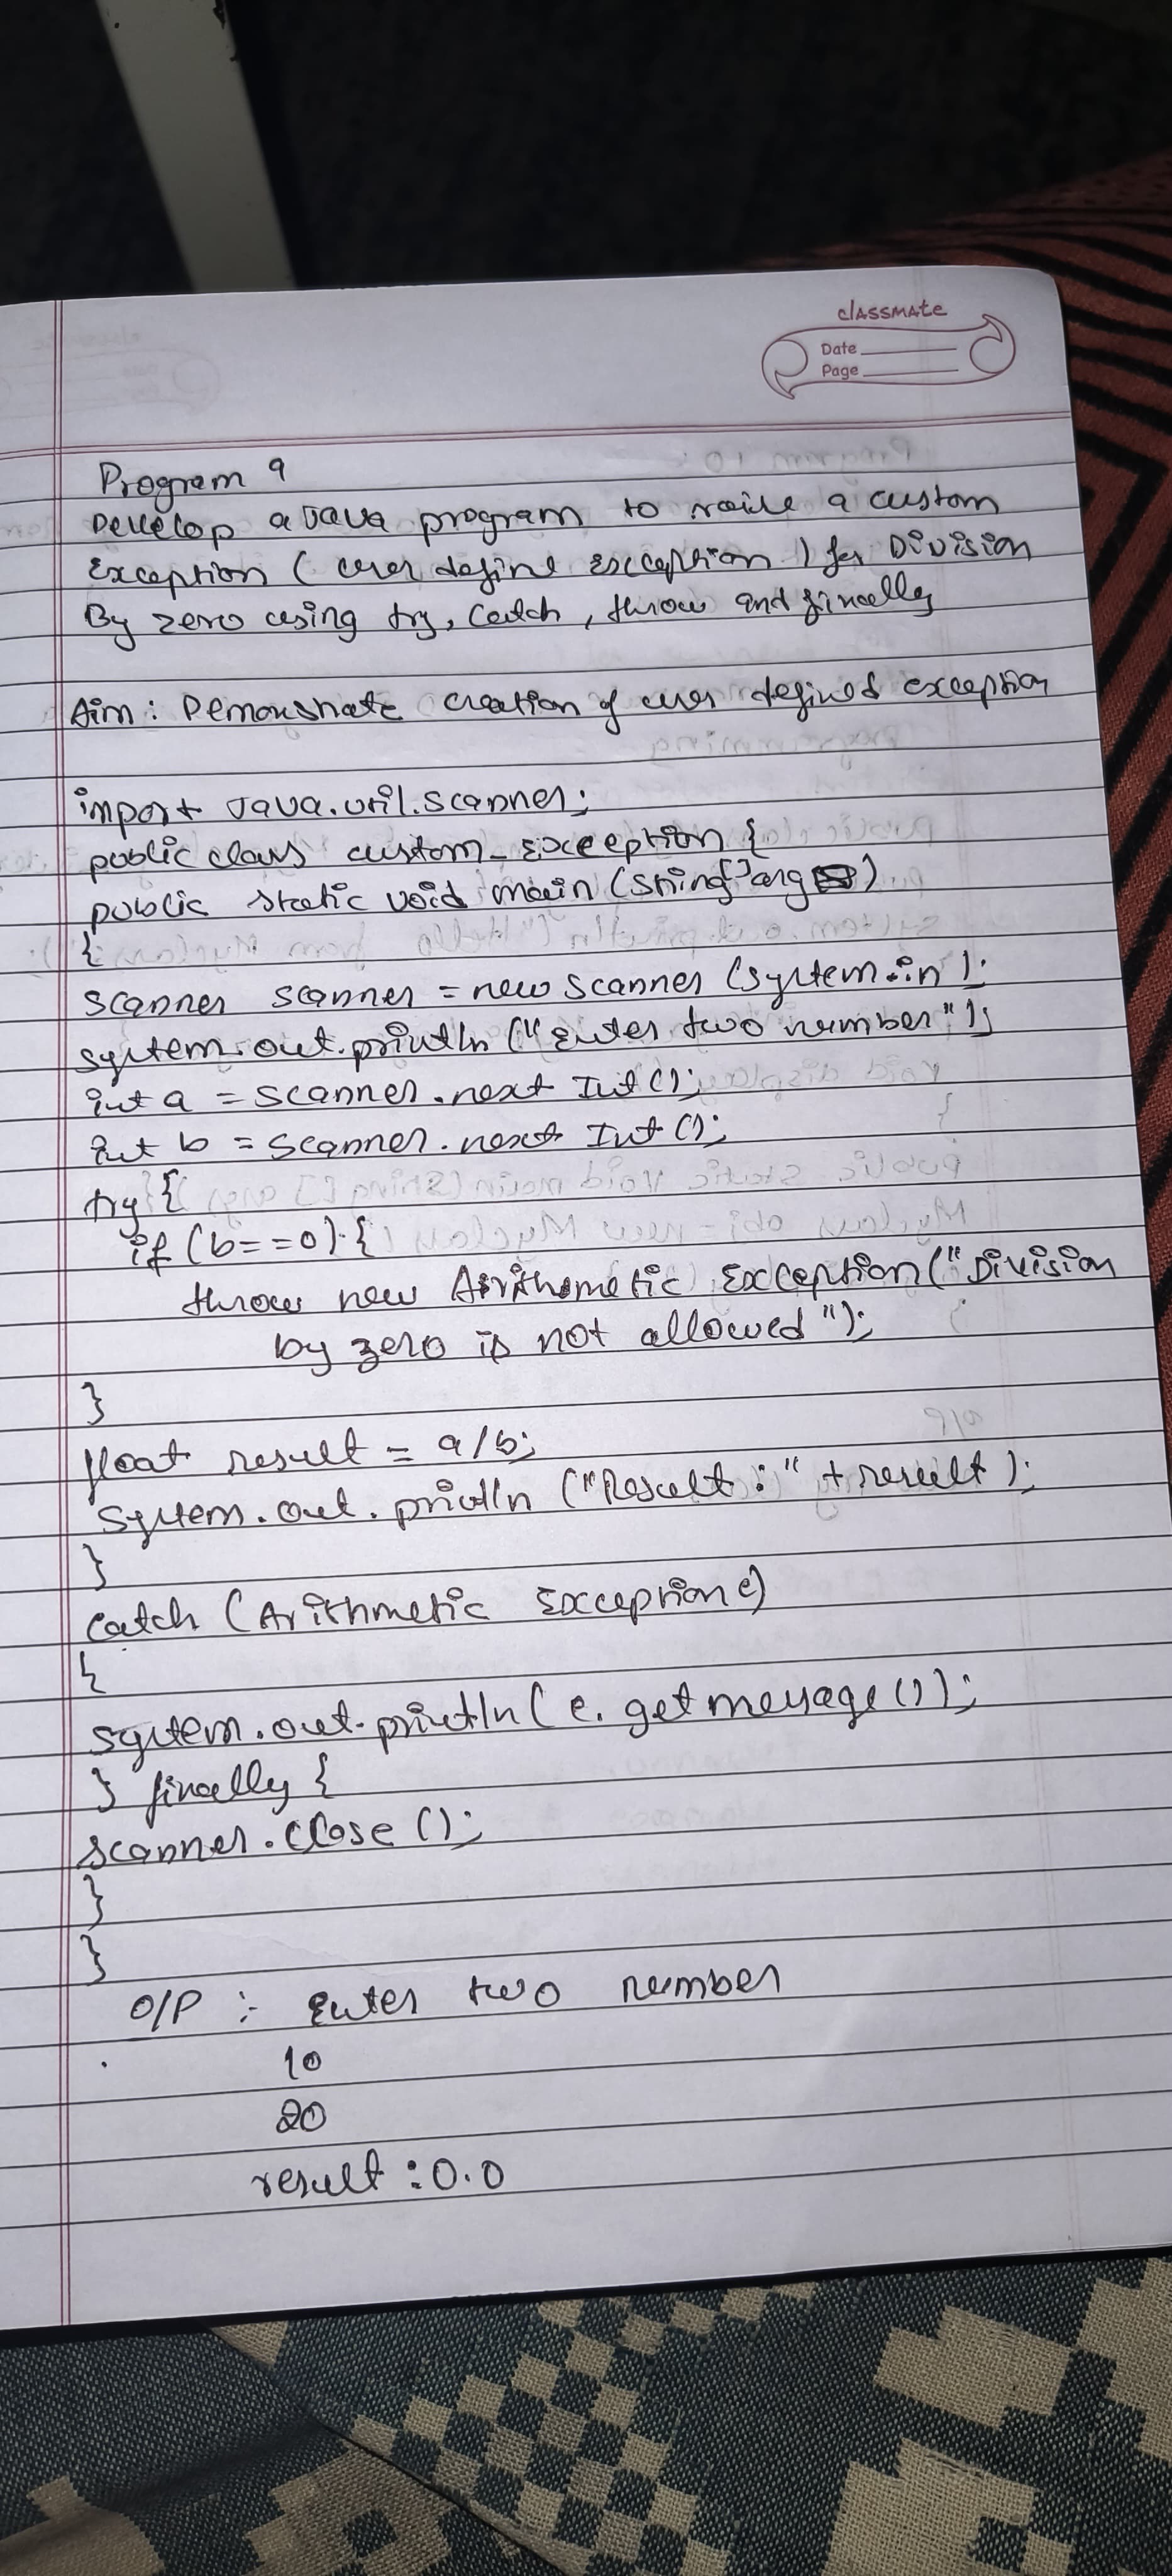 classmate
Date
Page
Program 9
Develop a Java program to raise a custom
Exception (user define exception) for Division
By zero using try, catch, throw and finally
Aim: Demonstrate creation of user defined exception
import Java.util.scanner;
public class custom_Exception {
public static void main (string[] arg)
{
scanner scanner = new scanner (system.in);
system.out.println ("Enter two number");
int a = scanner.next Int ();
int b = scanner.next Int ();
try {
if (b==0) {
throw new Arithmetic Exception("Division
by zero is not allowed");
}
float result = a/b;
system.out.println ("Result :" + result);
}
catch (Arithmetic Exception e)
{
system.out.println( e. getmessage ());
} finally {
scanner.close ();
}
}
O/P :- Enter two number
10
20
result : 0.0